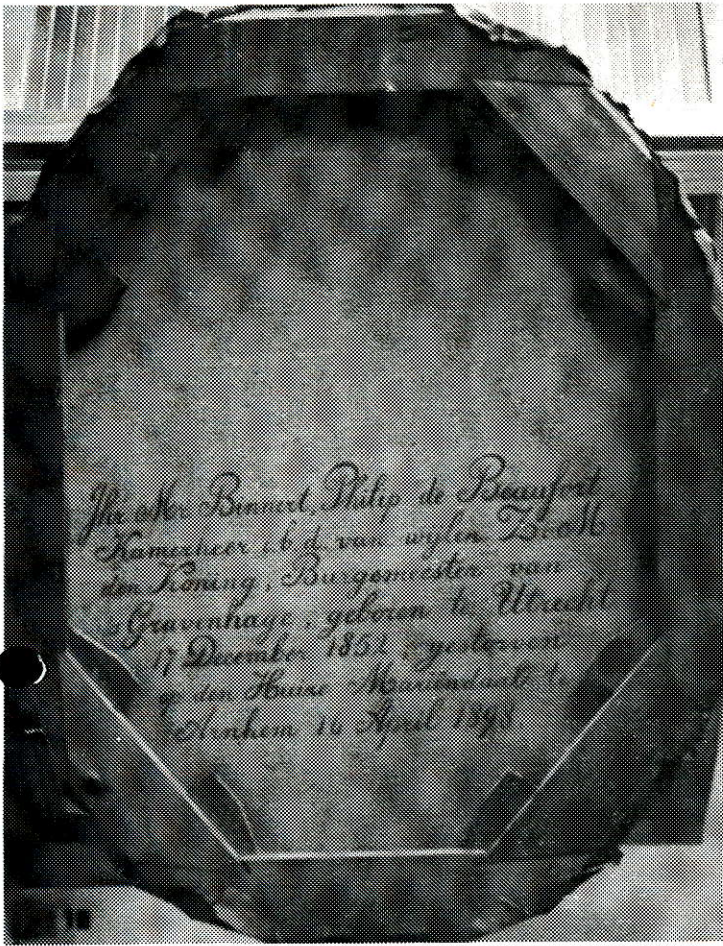 Jhr Mr Binnert, Philip de Beaufort
Kamerheer i.b.d. van wylen Z.M
den Koning, Burgemeester van
's Gravenhage, geboren te Utrecht
17 December 1852, gestorven
op den Huize Mariëndaal te
Arnhem 16 April 1898